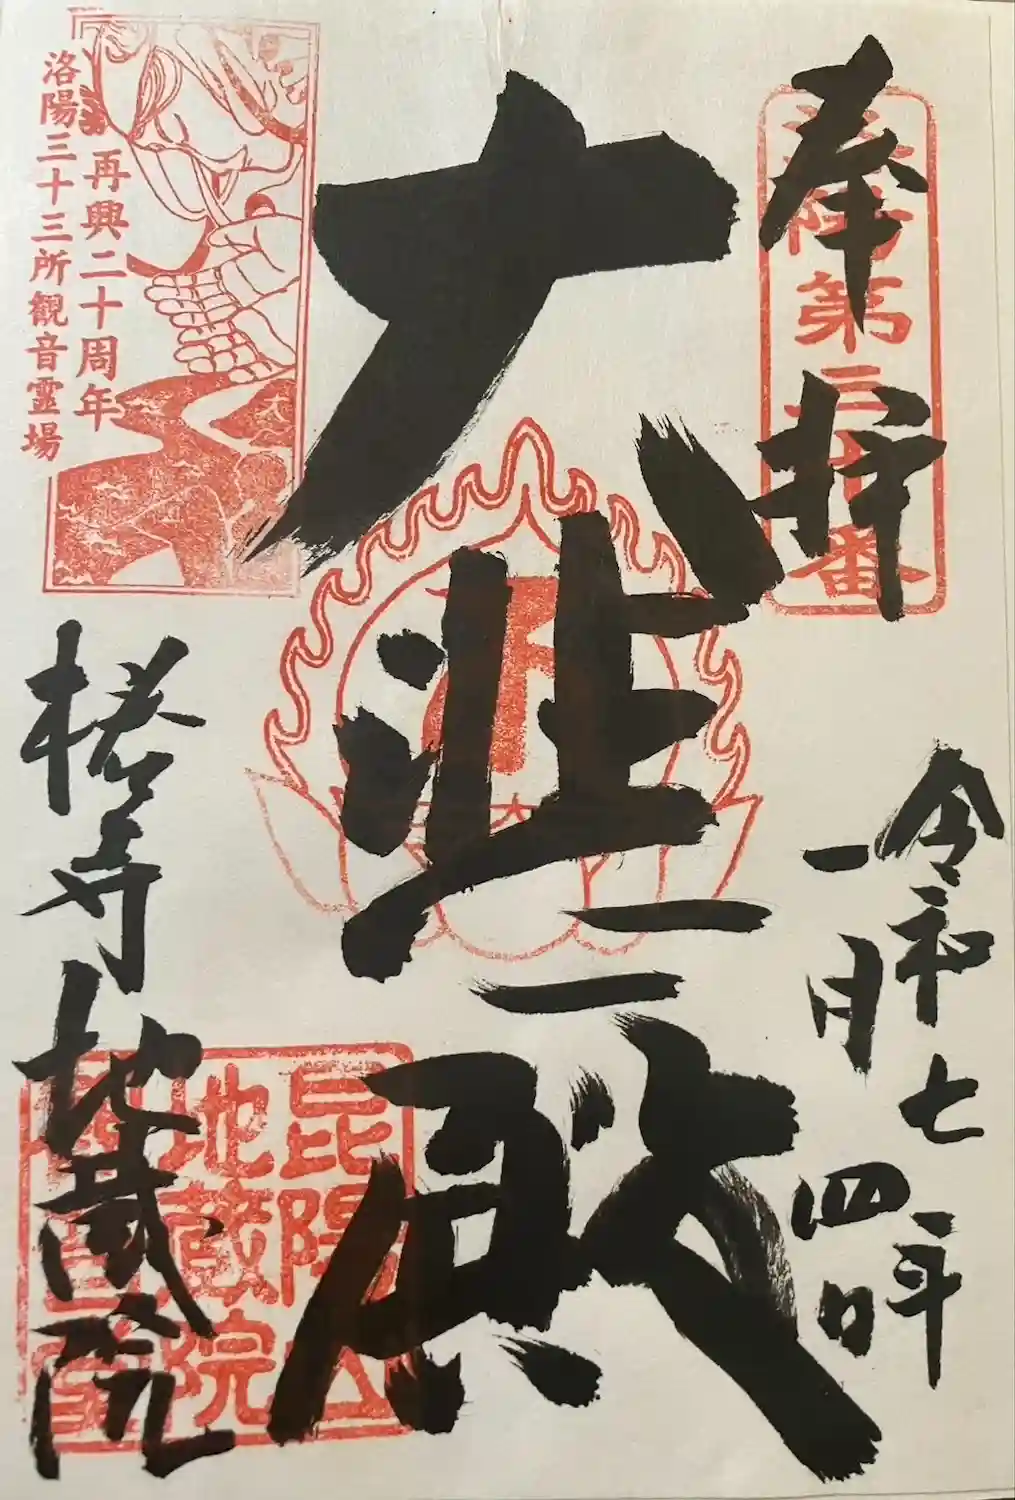 奉拝
洛陽第三十番
令和七年
一月四日
大悲殿
洛陽三十三所観音霊場
再興二十周年
椿寺地蔵院
昆陽山
地蔵院